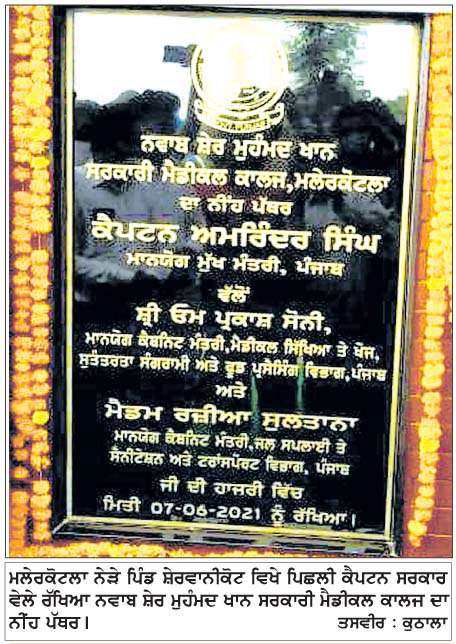 ਨਵਾਬ ਸ਼ੇਰ ਮੁਹੰਮਦ ਖਾਨ
ਸਰਕਾਰੀ ਮੈਡੀਕਲ ਕਾਲਜ,ਮਲੇਰਕੋਟਲਾ
ਦਾ ਨੀਂਹ ਪੱਥਰ
ਕੈਪਟਨ ਅਮਰਿੰਦਰ ਸਿੰਘ
ਮਾਨਯੋਗ ਮੁੱਖ ਮੰਤਰੀ, ਪੰਜਾਬ
ਵੱਲੋਂ
ਸ਼੍ਰੀ ਓਮ ਪ੍ਰਕਾਸ਼ ਸੋਨੀ,
ਮਾਨਯੋਗ ਕੈਬਨਿਟ ਮੰਤਰੀ,ਮੈਡੀਕਲ ਸਿੱਖਿਆ ਤੇ ਖੋਜ,
ਸੁਤੰਤਰਤਾ ਸੰਗਰਾਮੀ ਅਤੇ ਫੂਡ ਪ੍ਰੋਸੈਸਿੰਗ ਵਿਭਾਗ,ਪੰਜਾਬ
ਅਤੇ
ਮੈਡਮ ਰਜ਼ੀਆ ਸੁਲਤਾਨਾ
ਮਾਨਯੋਗ ਕੈਬਨਿਟ ਮੰਤਰੀ,ਜਲ ਸਪਲਾਈ ਤੇ
ਸੈਨੀਟੇਸ਼ਨ ਅਤੇ ਟਰਾਂਸਪੋਰਟ ਵਿਭਾਗ, ਪੰਜਾਬ
ਜੀ ਦੀ ਹਾਜਰੀ ਵਿੱਚ
ਮਿਤੀ 07-06-2021 ਨੂੰ ਰੱਖਿਆ।
ਮਲੇਰਕੋਟਲਾ ਨੇੜੇ ਪਿੰਡ ਸ਼ੇਰਵਾਨੀਕੋਟ ਵਿਖੇ ਪਿਛਲੀ ਕੈਪਟਨ ਸਰਕਾਰ
ਵੇਲੇ ਰੱਖਿਆ ਨਵਾਬ ਸ਼ੇਰ ਮੁਹੰਮਦ ਖਾਨ ਸਰਕਾਰੀ ਮੈਡੀਕਲ ਕਾਲਜ ਦਾ
ਨੀਂਹ ਪੱਥਰ। ਤਸਵੀਰ : ਕੁਠਾਲਾ